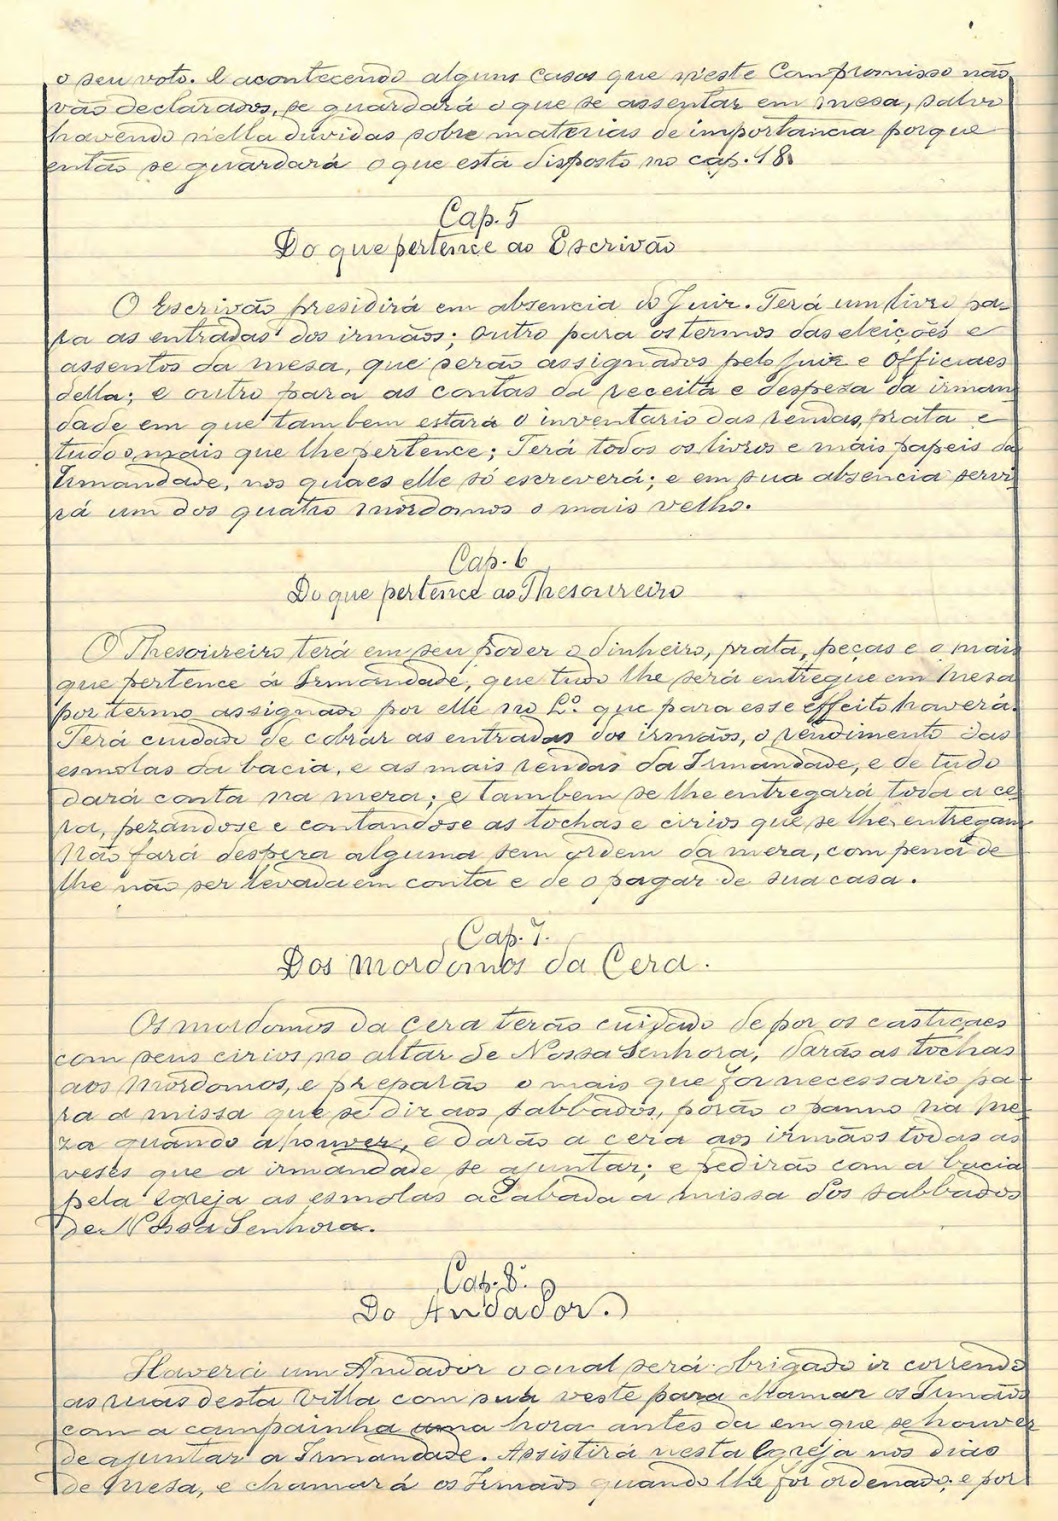 o seu voto. E acontecendo alguns casos que n'este Compromisso não
vão declarados, se guardará o que se assentar em mesa, salvo
havendo n'ella duvidas sobre materias de importancia porque
então se guardará o que está disposto no cap. 18.
Cap. 5
Do que pertence ao Escrivão
O Escrivão presidirá em absencia do Juiz. Terá um livro pa-
ra as entradas dos irmãos; outro para os termos das eleições e
assentos da mesa, que serão assignados pelo Juiz e Officiaes
della; e outro para as contas da receita e despeza da irman
dade em que tambem estará o inventario das rendas, prata e
tudo o mais que lhe pertence; Terá todos os livros e mais papeis da
Irmandade, nos quaes elle só escreverá; e em sua absencia servi-
rá um dos quatro mordomos o mais velho.
Cap. 6
Do que pertence ao Thesoureiro
O Thesoureiro terá em seu poder o dinheiro, prata, peças e o mais
que pertence á Irmandade, que tudo lhe será entregue em Mesa
por termo assignado por elle no L.º que para esse effeito haverá.
Terá cuidado de cobrar as entradas dos irmãos, o rendimento das
esmolas da bacia, e as mais rendas da Irmandade, e de tudo
dará conta na meza; e tambem se lhe entregará toda a ce-
ra, pezandose e contandose as tochas e cirios que se lhe entregam
Não fará despeza alguma sem ordem da meza, com pena de
lhe não ser levada em conta e de o pagar de sua casa.
Cap. 7.
Dos Mordomos da Cera.
Os mordomos da Cera terão cuidado de por os castiçaes
com seus cirios no altar de Nossa Senhora, darão as tochas
aos Mordomos, e preparão o mais que for necessario pa-
ra a missa que se dir aos sabbados, porão o panno na me-
za quando a houver, e darão a cera aos irmãos todas as
veses que a irmandade se ajuntar; e pedirão com a bacia
pela Egreja as esmolas acabada a missa dos sabbados
de Nossa Senhora.
Cap. 8.º
Do Andador.
Haverá um Andador o qual será obrigado ir correndo
as ruas desta Villa com sua veste para chamar os Irmãos
com a campainha uma hora antes da em que se houver
de ajuntar a Irmandade. Assistirá nesta Egreja nos dias
de Mesa, e chamará os Irmãos quando lhe for ordenado; e por